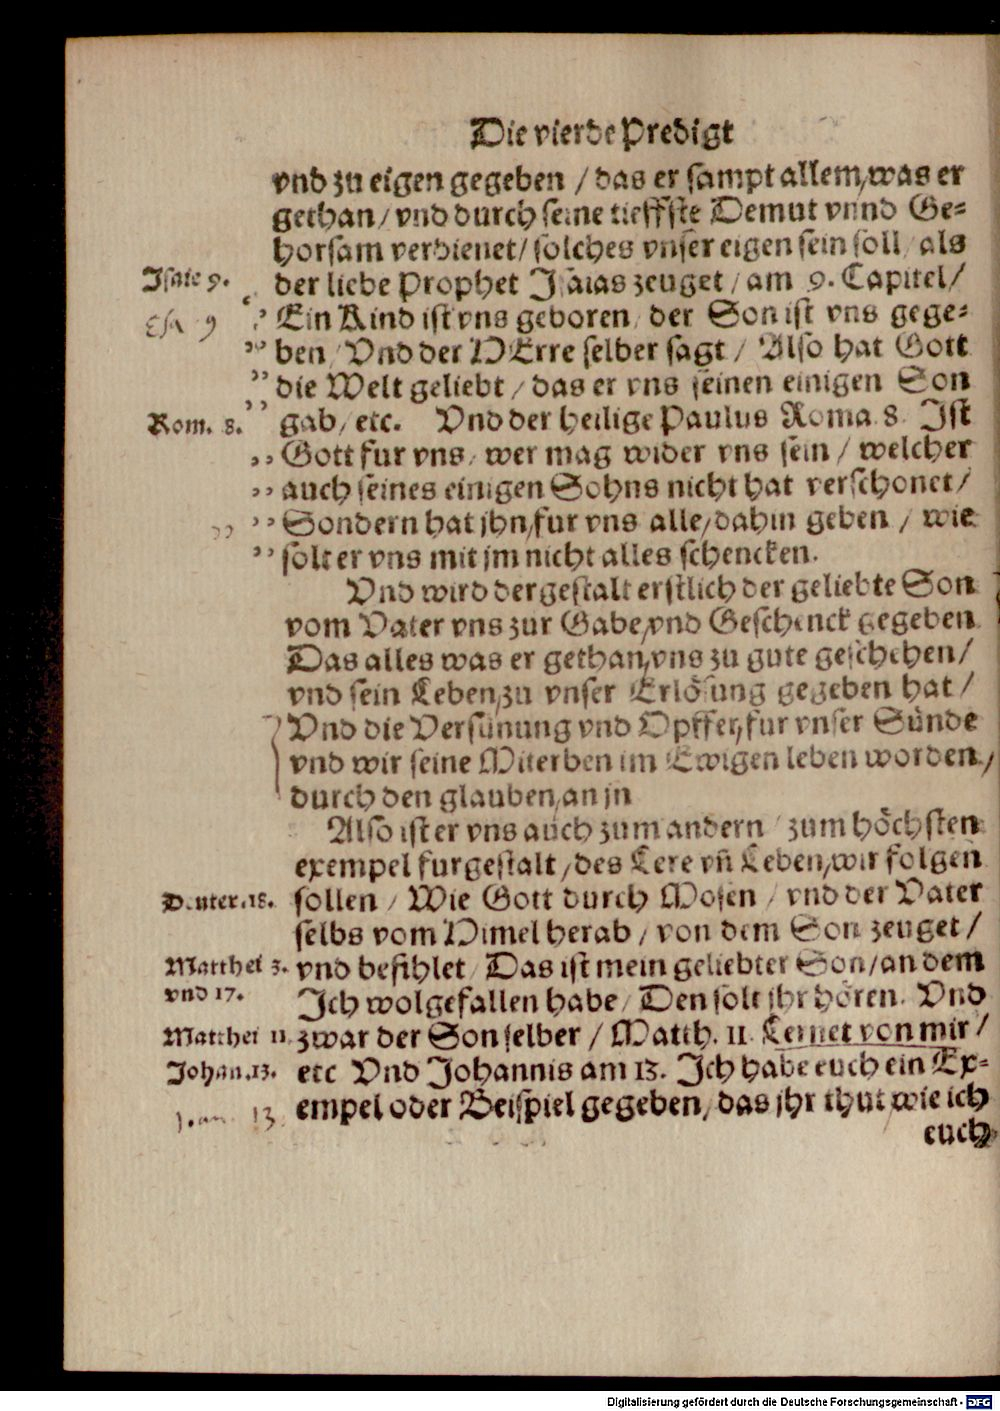 Die vierde Predigt
vnd zu eigen gegeben / das er sampt allem/was er
gethan/ vnd durch seine tieffste Demut vnnd Ge-
horsam verdienet/ solches vnser eigen sein soll/ als
Isaie 9. der liebe Prophet Isaias zeuget / am 9. Capitel/
Esa 9 ,, Ein Kind ist vns geboren/ der Son ist vns gege-
,, ben/ Vnd der HErre selber sagt / Also hat Gott
,, die Welt geliebt / das er vns seinen einigen Son
Rom. 8. ,, gab/ etc. Vnd der heilige Paulus Roma. 8. Ist
,, Gott fur vns/ wer mag wider vns sein / welcher
,, auch seines einigen Sohns nicht hat verschonet/
,, Sondern hat jhn/fur vns alle/dahin geben / wie
,, solt er vns mit jm nicht alles schencken.
Vnd wird dergestalt erstlich der geliebte Son
vom Vater vns zur Gabe/vnd Geschenck gegeben
Das alles was er gethan/vns zu gute geschehen/
vnd sein Leben/zu vnser Erlösung gegeben hat /
Vnd die Versünung vnd Opffer/fur vnser Sünde
vnd wir seine Miterben im Ewigen leben worden/
durch den glauben/an jn
Also ist er vns auch zum andern / zum höchsten
exempel furgestalt /des Lere vn̄ Leben/wir folgen
Deuter.18. sollen / Wie Gott durch Mosen / vnd der Vater
selbs vom Himel herab / von dem Son zeuget /
Matthei 3. vnd befihlet/ Das ist mein geliebter Son/an dem
vnd 17. Ich wolgefallen habe/ Den solt jhr hören. Vnd
Matthei 11. zwar der Son selber / Matth. 11. Lernet von mir /
Johan.13. etc Vnd Johannis am 13. Ich habe euch ein Ex-
13 empel oder Beispiel gegeben/ das jhr thut wie ich
euch
Digitalisierung gefördert durch die Deutsche Forschungsgemeinschaft - DFG